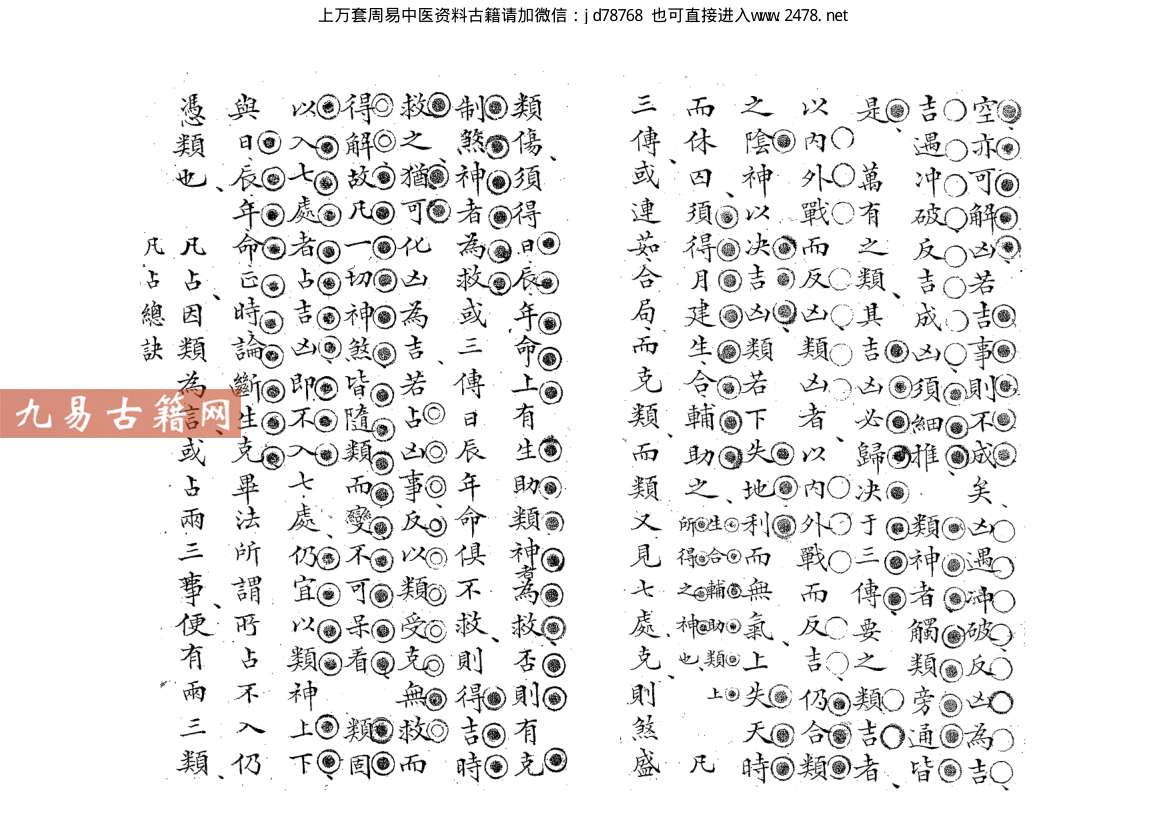 上万套周易中医资料古籍请加微信：jd78768 也可直接进入www.2478.net
空亦可解凶若吉事則不成矣凶遇冲破反凶為吉
吉遇冲破反吉成凶須細推 類神者觸類旁通皆
是 萬有之類其吉凶必歸决于三傳要之類吉者
以内外戰而反凶類凶者以内外戰而反吉仍合類
之陰神以决吉凶類若下失地利而無氣上失天時
而休囚須得月建生合輔助之
生合輔助類上
所得之神也
凡
三傳或連茹合局而克類而類又見七處克則煞盛
類傷須得日辰年命上有生助類神者為救否則有克
制煞神者為救或三傳日辰年命俱不救則得吉時
救之猶可化凶為吉若占凶事反以類受克無救而
得解故凡一切神煞皆隨類而變不可呆看 類固
以入七處者占吉凶即不入七處仍宜以類神上下
與日辰年命正時論斷生克畢法所謂所占不入仍
憑類也 凡占因類為言或占兩三事便有兩三類
凡占總訣
九易古籍网